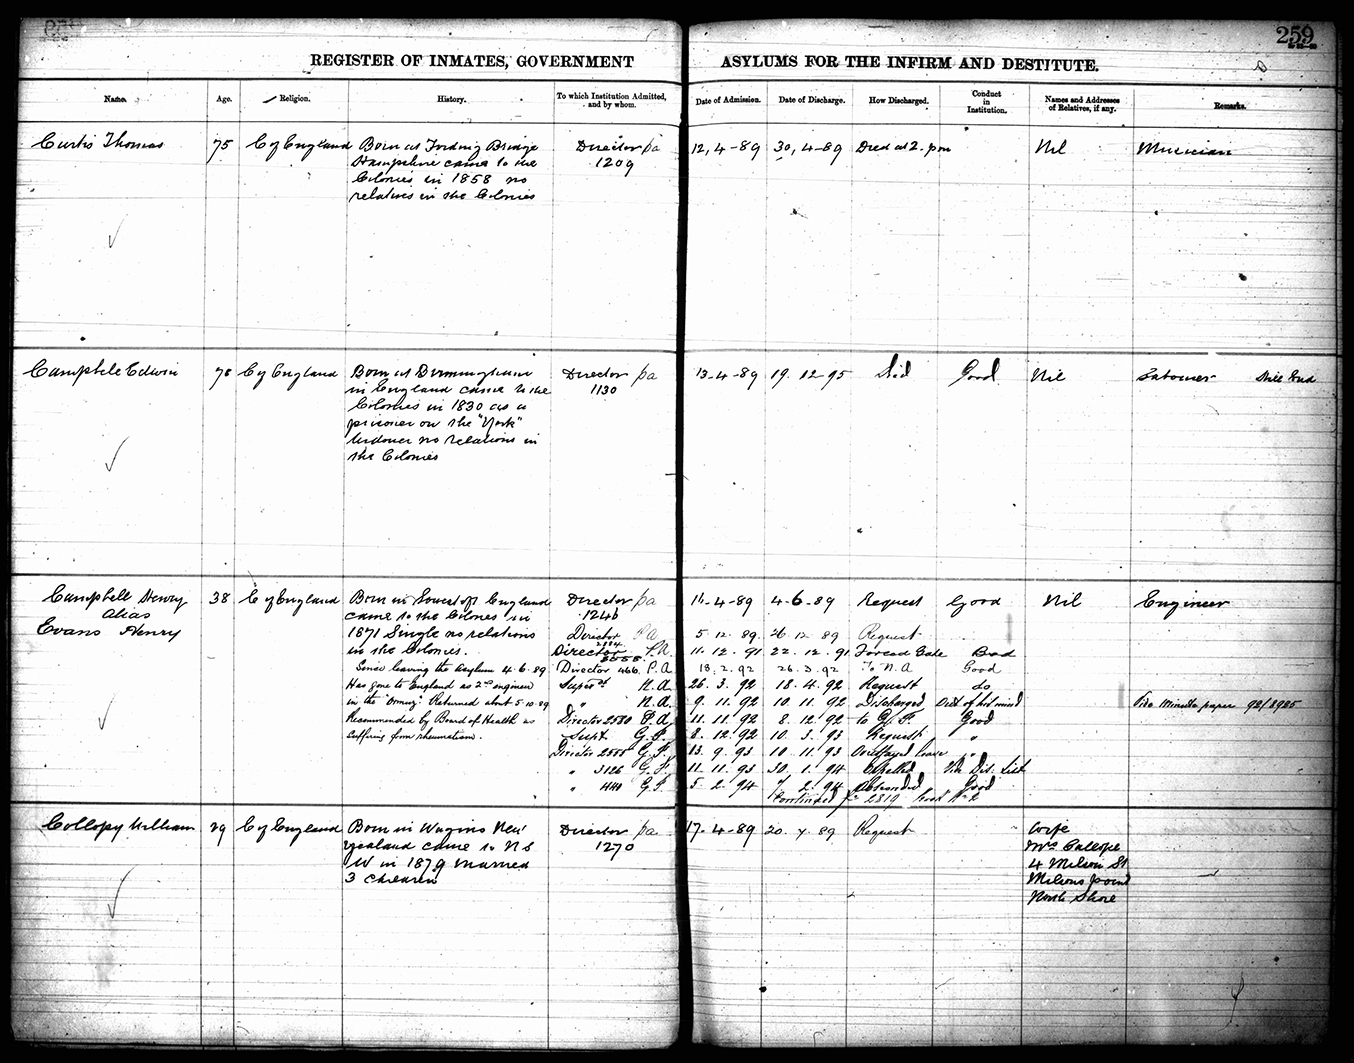 259
REGISTER OF INMATES, GOVERNMENT ASYLUMS FOR THE INFIRM AND DESTITUTE.
Name. Age. Religion. History. To which Institution Admitted, and by whom. Date of Admission. Date of Discharge. How Discharged. Conduct in Institution. Names and Addresses of Relatives, if any. Remarks.
Curtis Thomas 75 C of England Born at Fording Bridge Director pa 12,4-89 30,4-89 Died at 2. pm Nil Musician
Hampshire came to the 1209
Colonies in 1858 no
relatives in the Colonies
Campbell Edwin 78 C of England Born at Birmingham Director pa 13-4-89 19.12-95 Died Good Nil Labourer
in England came to the 1130
Colonies in 1830 as a
prisoner on the "York"
Widower no relations in
the Colonies
Campbell Henry 38 C of England Born in Lowestoft England Director pa 4-6-89 Request Good Nil Engineer
alias came to the Colonies in 1246
Evans Henry 1871 Single no relations Director P A 5.12.89. 26.12.89 Request
in the Colonies. Director P.A. 11.12.91 22.12.91 Forced Gate Bad
Since leaving the Asylum 4.6.89 Director 466 P.A 18.2.92 26.3.92 To N.A Good
Has gone to England as 2nd engineer Supdt N.A. 26.3.92 18.4.92 Request do
in the "Ormuz". Returned about 5.10.89 " N.A. 9.11.92 10.11.92 Discharged Vide Minute paper 92/3985
Recommended by Board of Health as Director 2580 P.A. 11.11.92 8.12.92 to G.F. Good
suffering from rheumatism. Supt G.F. 8.12.92 10.3.93 Request "
Director 2555 G.F. 13.9.93 10.11.93 Overstayed leave "
" 3126 G.F 11.11.93 30.1.94 Expelled Vide Dis. List
" 440 G.F. 5.2.94 7.2.94 Absconded Good
Continued fo 2819 Book No 2
Collopy William 29 C of England Born in New Director pa 17-4-89 20.7.89 Request Wife
Zealand came to N S 1270 Mrs Collope
W in 1879 married 4 Milson St
3 children Milsons point
North Shore